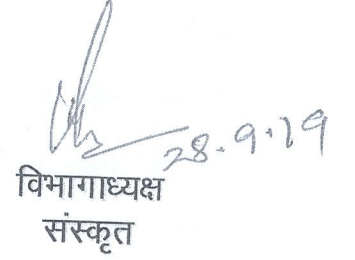 28.9.19
विभागाध्यक्ष
संस्कृत